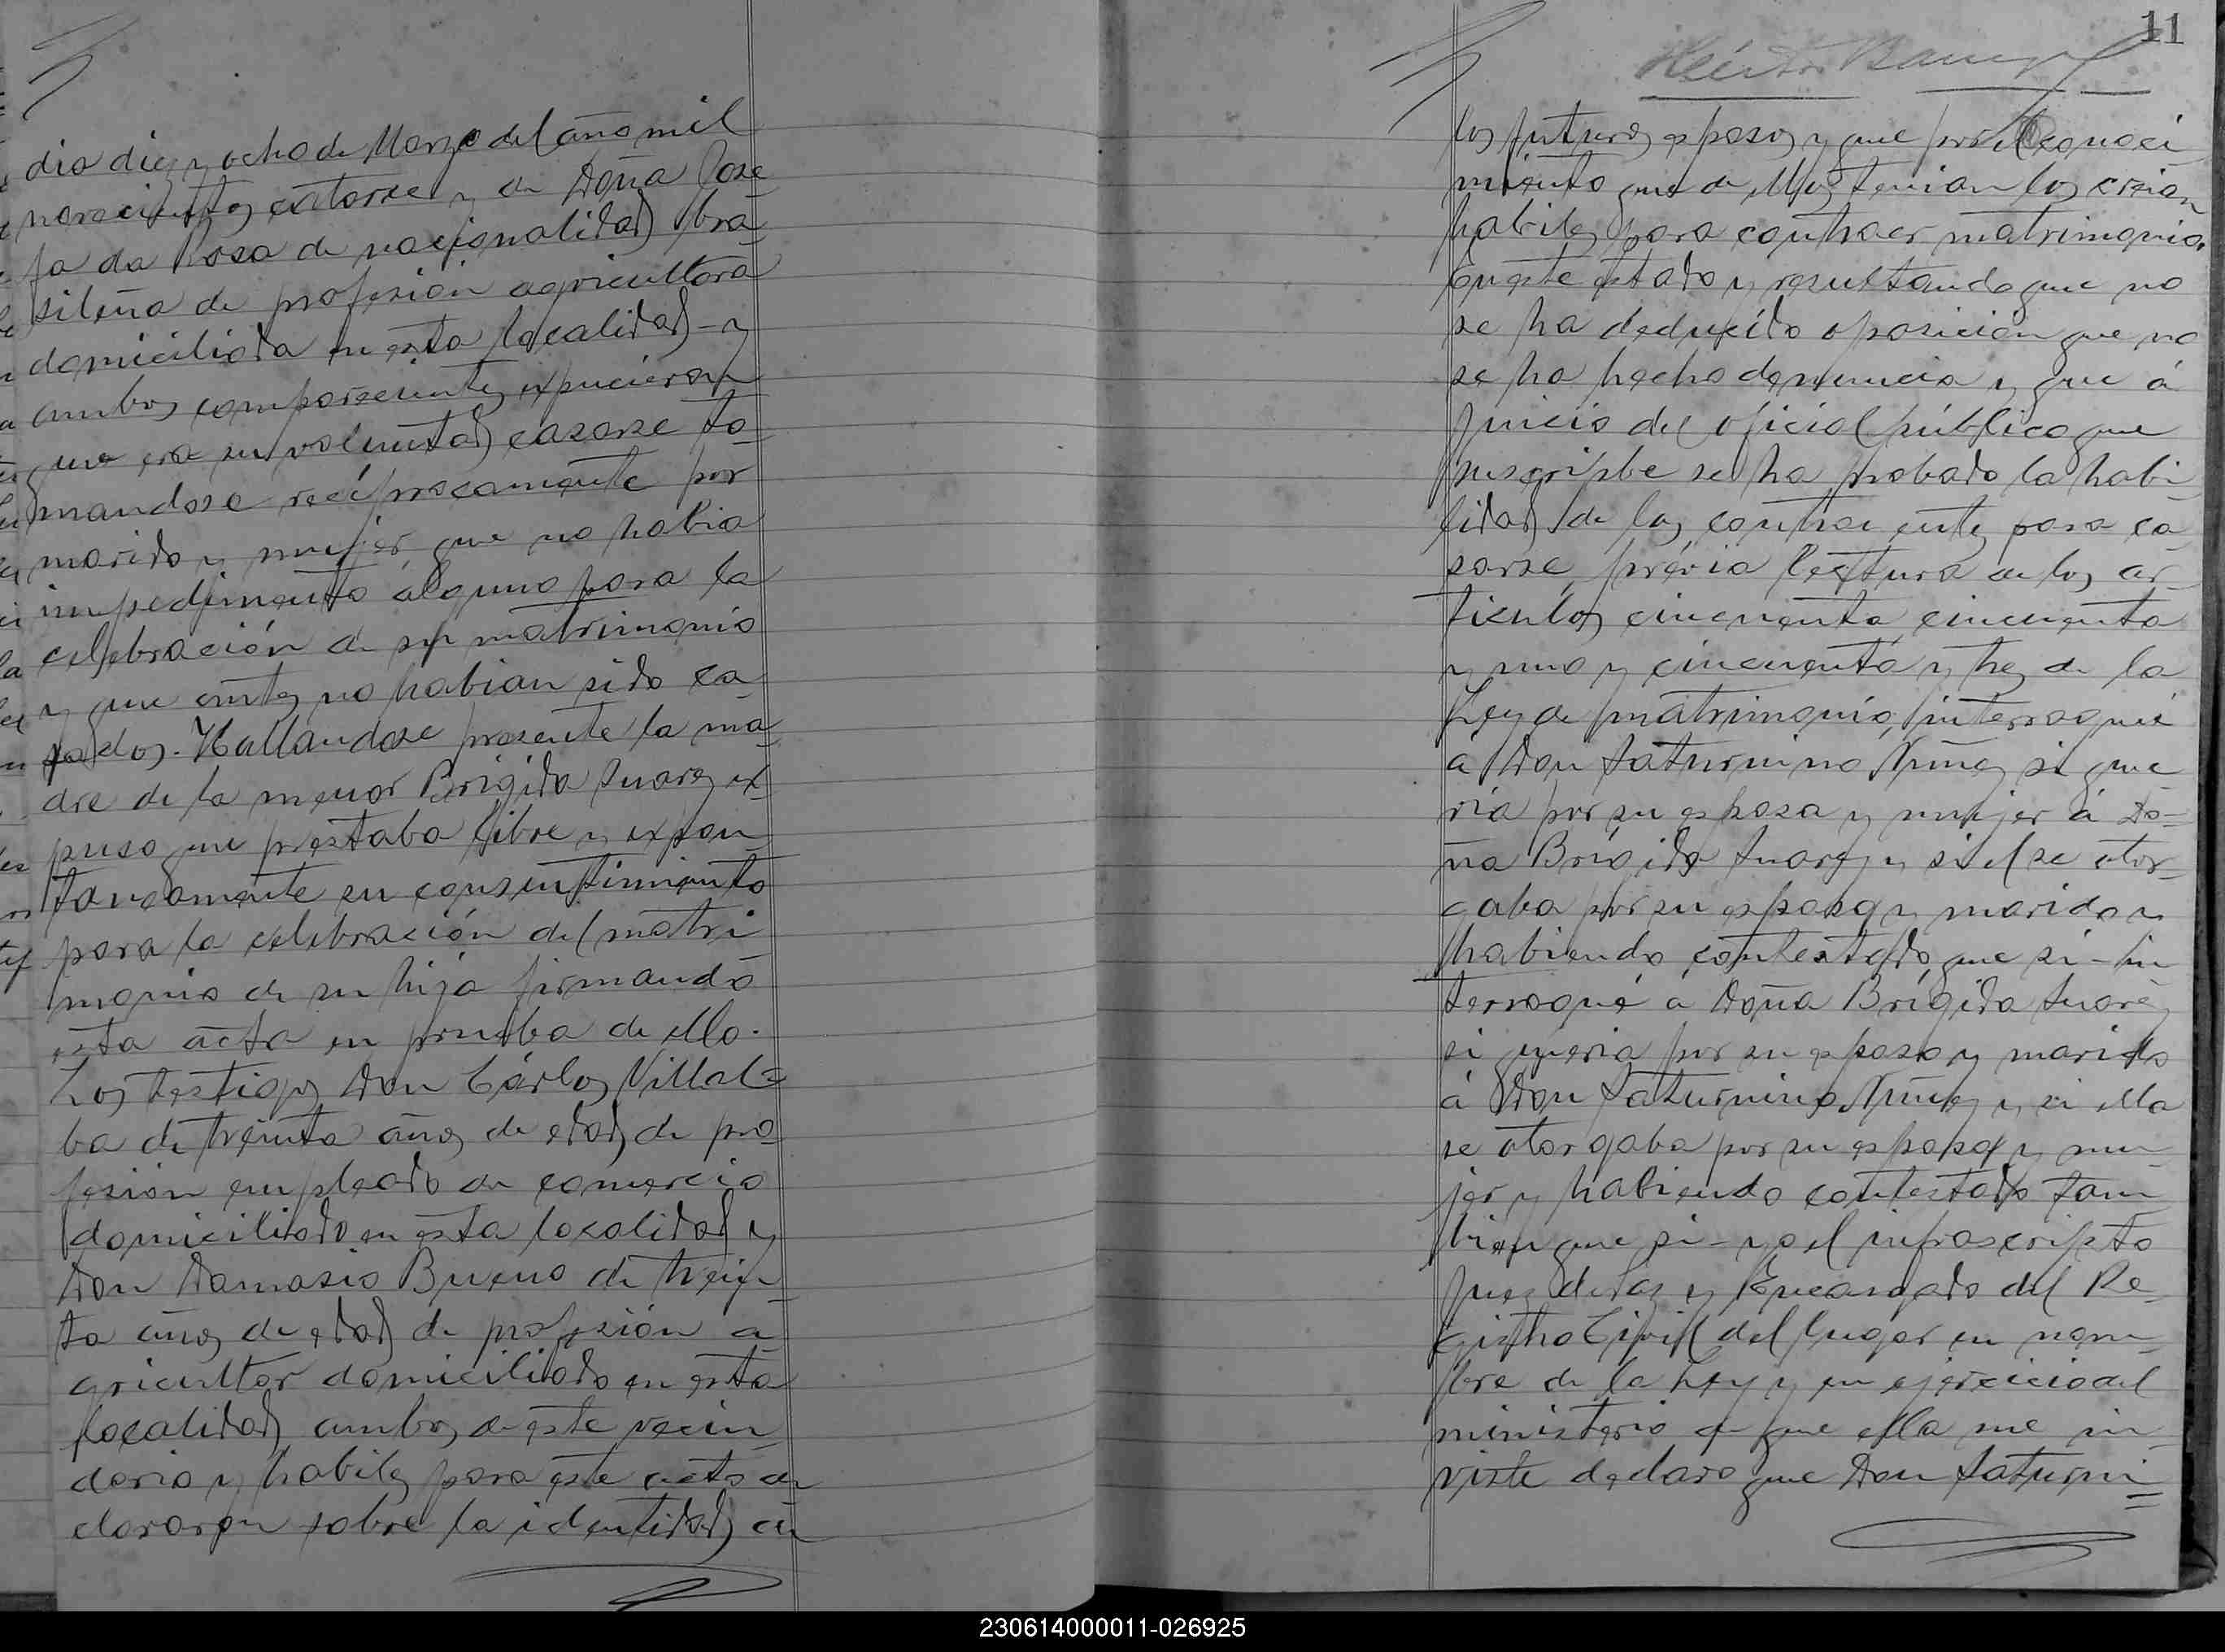 dia diez y ocho de Marzo del año mil
novecientos catorse y de Doña Jose
fa da Rosa de nacionalidad bra-
sileña de profesión agricultora
domiciliada en esta localidad - y
ambos comparecientes expucieron
que era su voluntad casarse to-
mandose recíprocamente por
marido y mujer que no habia
impedimento alguno para la
celebración de su matrimonio
y que antes no habian sido ca-
sados. Hallandose presente la ma-
dre de la menor Brigida Suarez ex-
puso que prestaba libre y expon-
taneamente su consentimiento
para la celebración del matri
monio de su hija firmando
esta acta en prueba de ello.
Los testigos Don Cárlos Villal=
ba de treinta años de edad de pro-
fesión empleado de comercio
domiciliado en esta localidad y
Don Damasio Bueno de trein-
ta años de edad de profesión a-
gricultor domiciliado en esta
localidad ambos de este vecin-
dario y habiles para este acto de
clararon sobre la identidad de
11
Héctor
los futuros esposos y que por el conoci
miento que de ellos tenian los creian
habiles para contraer matrimonio.
En este estado y resultando que no
se ha deducido oposicion que no
se ha hecho denuncia y que á
juicio del oficial público que
suscripbe se ha probado la habi-
lidad de los contrae entes para ca-
sarse, prévia lectura de los ar-
ticulos cincuenta cincuenta
y uno y cincuenta y tres de la
Ley de matrimonio, interrogué
á Don Saturnino Nuñez si que
ría por su esposa y mujer á Do-
ña Brígida Suarez y si el se otor-
gaba por su esposo y marido y
habiendo contestado que si - in
terrogué á Doña Brígida Suarez
si queria por su esposo y marido
á Don Saturnino Nuñez y si ella
se otorgaba por su esposa y mu-
jer y habiendo contestado tam-
bien que si - yo el infrascripto
Juez de Paz y Encargado del Re-
gistro Civil del lugar en nom-
bre de la Ley y en ejercicio del
ministerio de que ella me in-
viste declaro que Don Saturni=
230614000011-026925